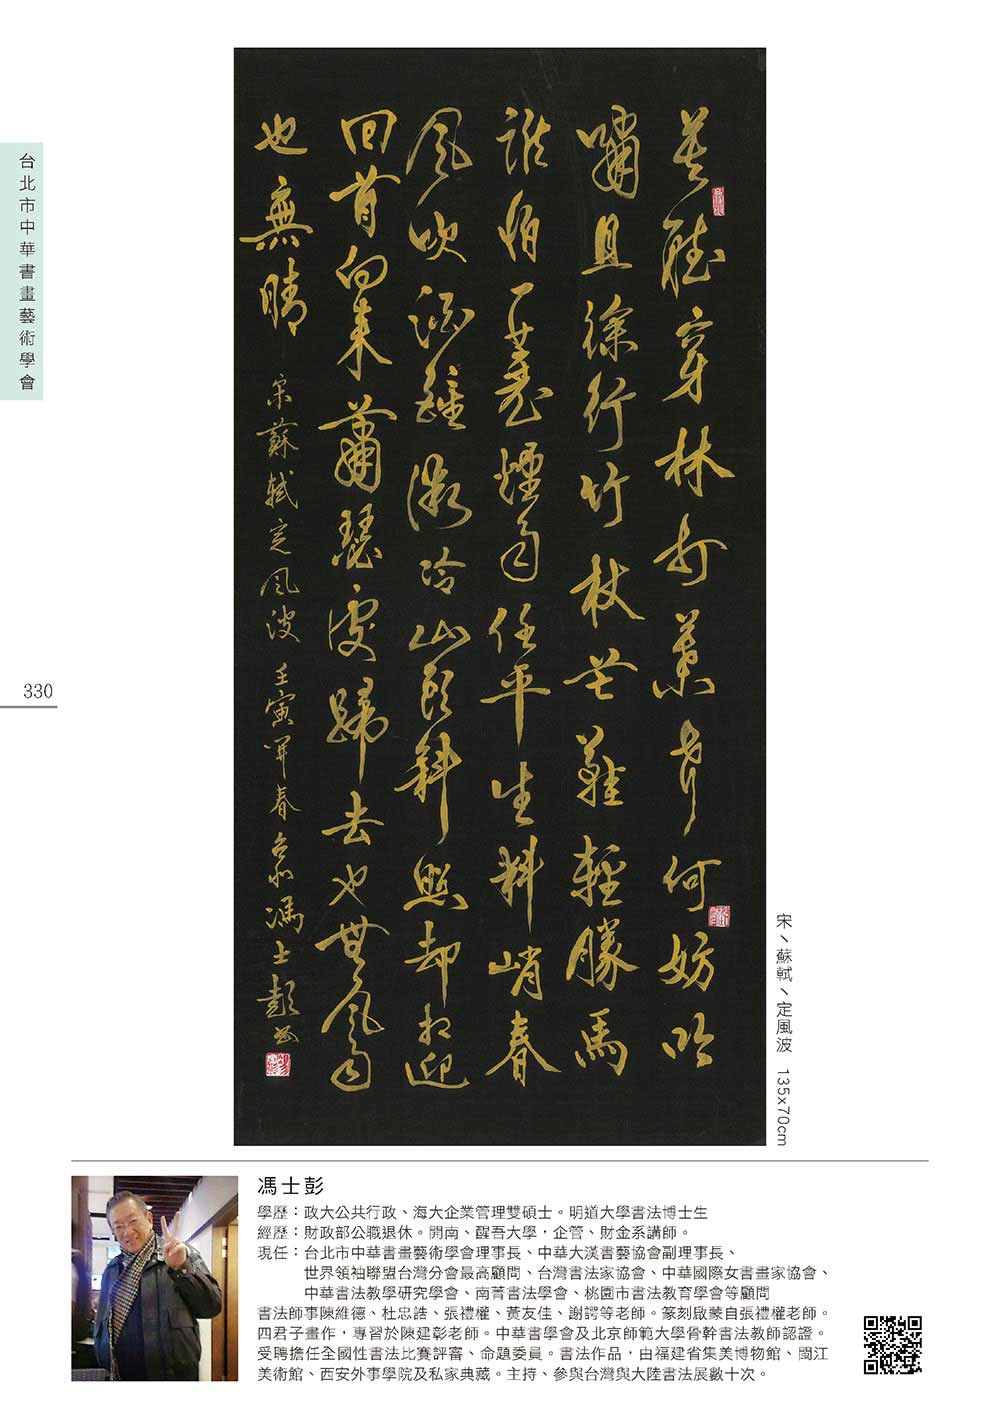 台北市中華書畫藝術學會
330
莫聽穿林打葉聲何妨吟
嘯且徐行竹杖芒鞋輕勝馬
誰怕一蓑煙雨任平生料峭春
風吹酒醒微冷山頭斜照却相迎
回首向來蕭瑟處歸去也無風雨
也無晴
宋蘇軾定風波 壬寅開春台北馮士彭書
宋、蘇軾、定風波 135x70cm
馮士彭
學歷：政大公共行政、海大企業管理雙碩士。明道大學書法博士生
經歷：財政部公職退休。開南、醒吾大學，企管、財金系講師。
現任：台北市中華書畫藝術學會理事長、中華大漢書藝協會副理事長、
世界領袖聯盟台灣分會最高顧問、台灣書法家協會、中華國際女書畫家協會、
中華書法教學研究學會、南菁書法學會、桃園市書法教育學會等顧問
書法師事陳維德、杜忠誥、張禮權、黃友佳、謝諤等老師。篆刻啟蒙自張禮權老師。
四君子畫作，專習於陳建彰老師。中華書學會及北京師範大學骨幹書法教師認證。
受聘擔任全國性書法比賽評審、命題委員。書法作品，由福建省集美博物館、閩江
美術館、西安外事學院及私家典藏。主持、參與台灣與大陸書法展數十次。